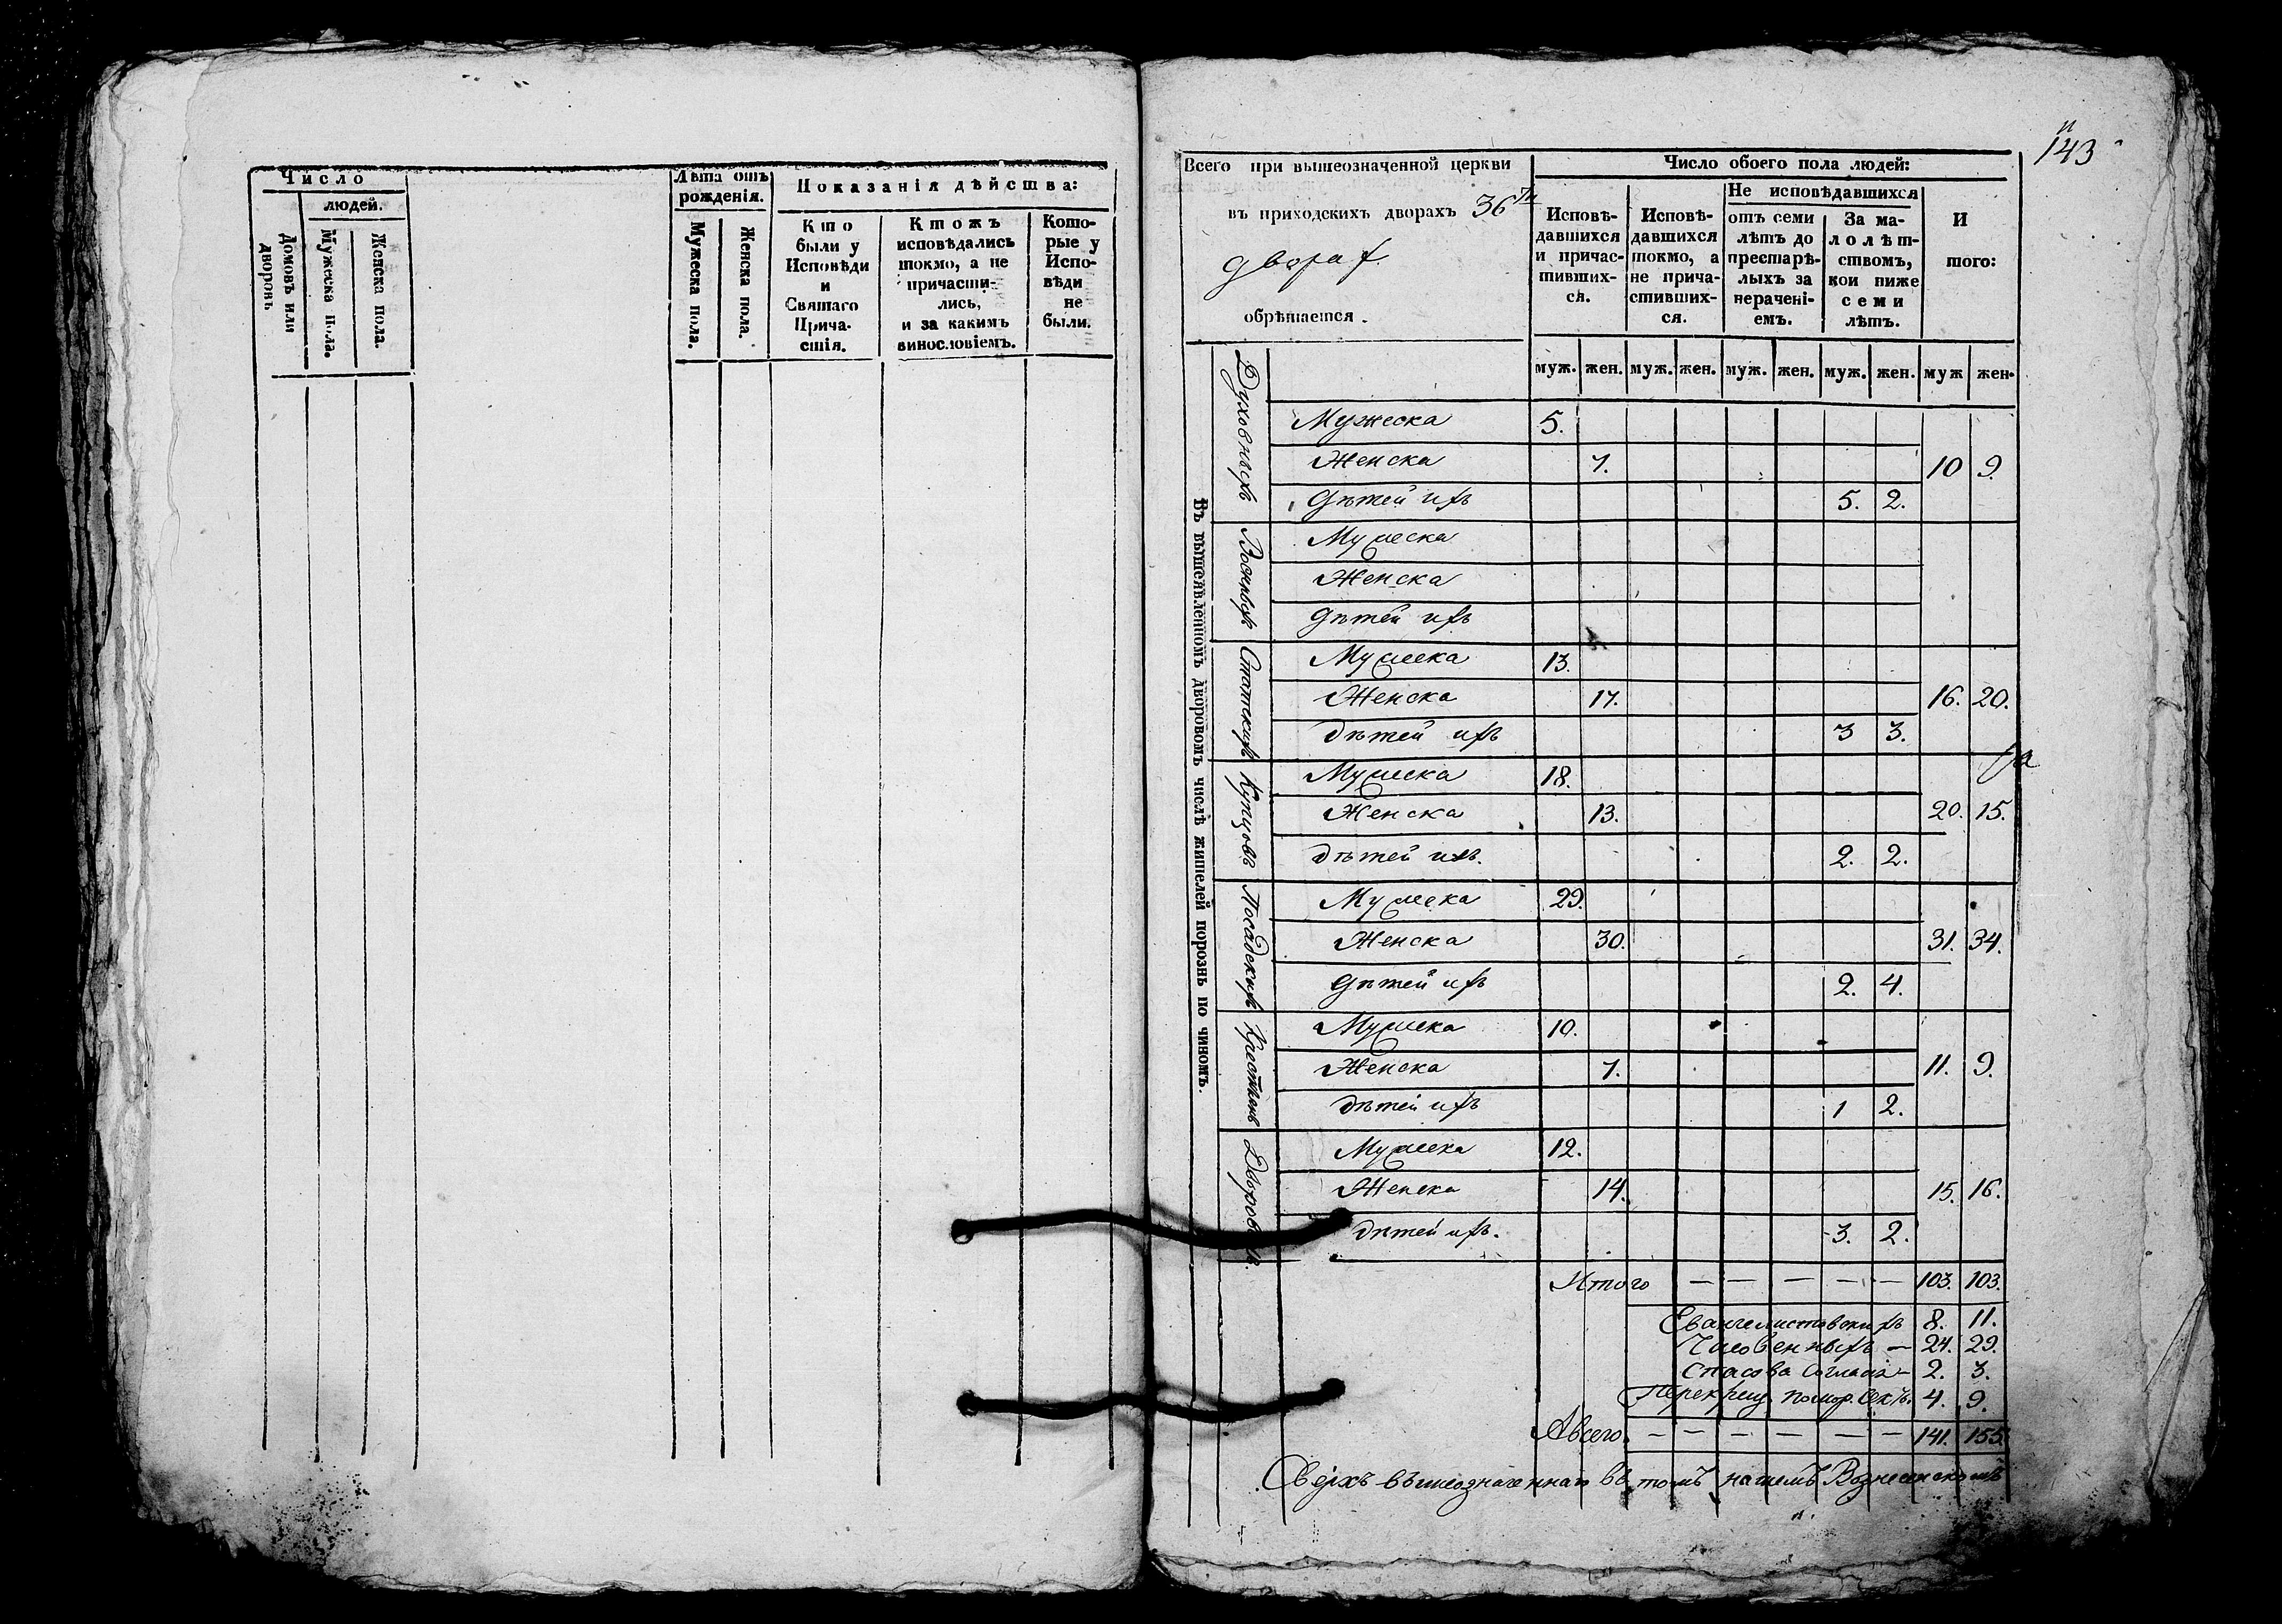 Число
людей.
Домовъ или дворовъ
Мужеска пола.
Женска пола.
Лѣта отъ
рожденія.
Мужеска пола.
Женска пола.
Показанія дѣйства:
Кто
были у
Исповѣди
и
Святаго
Прича-
стія.
Ктожъ
исповѣдались
токмо, а не
причасти-
лись,
и за какимъ
винословіемъ.
Кото-
рые у
Испо-
вѣди
не
были.
143
Всего при вышеозначенной церкви
въ приходскихъ дворахъ 36ти
дворах
обрѣтается
Число обоего пола людей:
Исповѣ-
давшихся
и причас-
тивших-
ся.
Исповѣ-
давшихся
токмо, а
не прича-
стивших-
ся.
Не исповѣдавшихся
отъ семи
лѣтъ до
престарѣ-
лыхъ за
нерачені-
емъ.
За ма-
лолѣт-
ствомъ,
кои ниже
семи
лѣтъ.
И
того:
муж. жен. муж. жен. муж. жен. муж. жен. муж жен.
Въ вышеявленномъ дворовомъ числѣ жителей порознь по чиномъ.
Духовныхъ
Мужеска 5.
Женска 7. 10 9.
Дѣтей ихъ 5. 2.
Военныхъ
Мужеска
Женска
Дѣтей ихъ
Статскихъ
Мужеска 13.
Женска 17. 16. 20.
Дѣтей ихъ 3 3.
Купцовъ
Мужеска 18.
Женска 13. 20. 15.
Дѣтей ихъ. 2. 2.
Посадскихъ
Мужеска 29.
Женска 30. 31. 34.
Дѣтей ихъ 2. 4.
Крестьянъ
Мужеска 10.
Женска 7. 11. 9.
Дѣтей ихъ 1 2.
Дворовыхъ.
Мужеска 12.
Женска 14. 15. 16.
Дѣтей ихъ. 3. 2.
Итого — — — — — 103. 103.
Евангелистовскихъ 8. 11.
Часовенныхъ — 24. 29.
Спасова согласія — 2. 3.
Перекрещ. помор. секты. 4. 9.
А всего. — — — — — — 141. 155.
Сверхъ вышеозначеннаго въ томъ нашемъ Вознесенскомъ